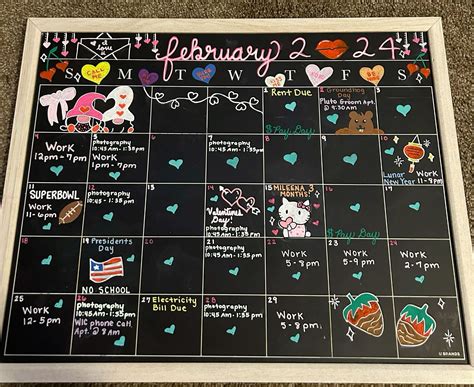 I
love
u
february 2 24
S M T W T F S
CALL
ME
BE
MINE
1 Rent Due
$ Pay Day
2 Groundhog
Day
Pluto Groom Apt.
@ 9:30AM
3
4
Work
12pm - 7pm
5
photography
10:45AM - 1:35pm
Work
1pm - 7pm
6
7
photography
10:45AM - 1:35pm
8
9
10
Lunar
New Year
Work
11 - 8pm
11
SUPERBOWL
Work
11 - 6pm
12
photography
10:45AM - 1:35pm
13
14
Valentines
Day!
photography
10:45AM - 1:35pm
15 MILEENA 3
MONTHS!
16
$ Pay Day
17
18
Work
19 Presidents
Day
NO SCHOOL
20
21
22
Work
5 - 8pm
23
Work
5 - 9pm
24
Work
2 - 7pm
25
Work
12 - 5pm
26
photography
10:45AM - 1:35pm
WIC phone Call
Apt. @ 8 AM
27 Electricity
Bill Due
28
photography
10:45AM - 1:35pm
29
Work
5 - 8pm
U BRANDS